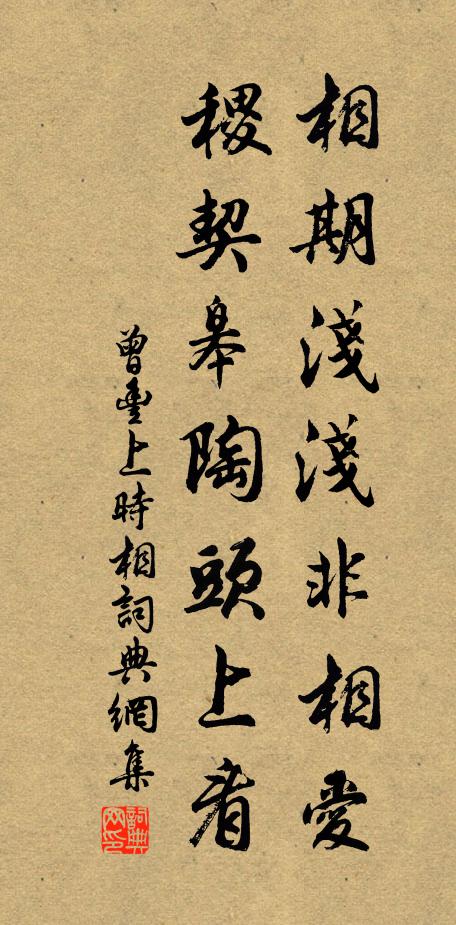 相期淺淺非相愛
稷契皋陶頭上看
曾豐上時相詞典網集
詞典
网印